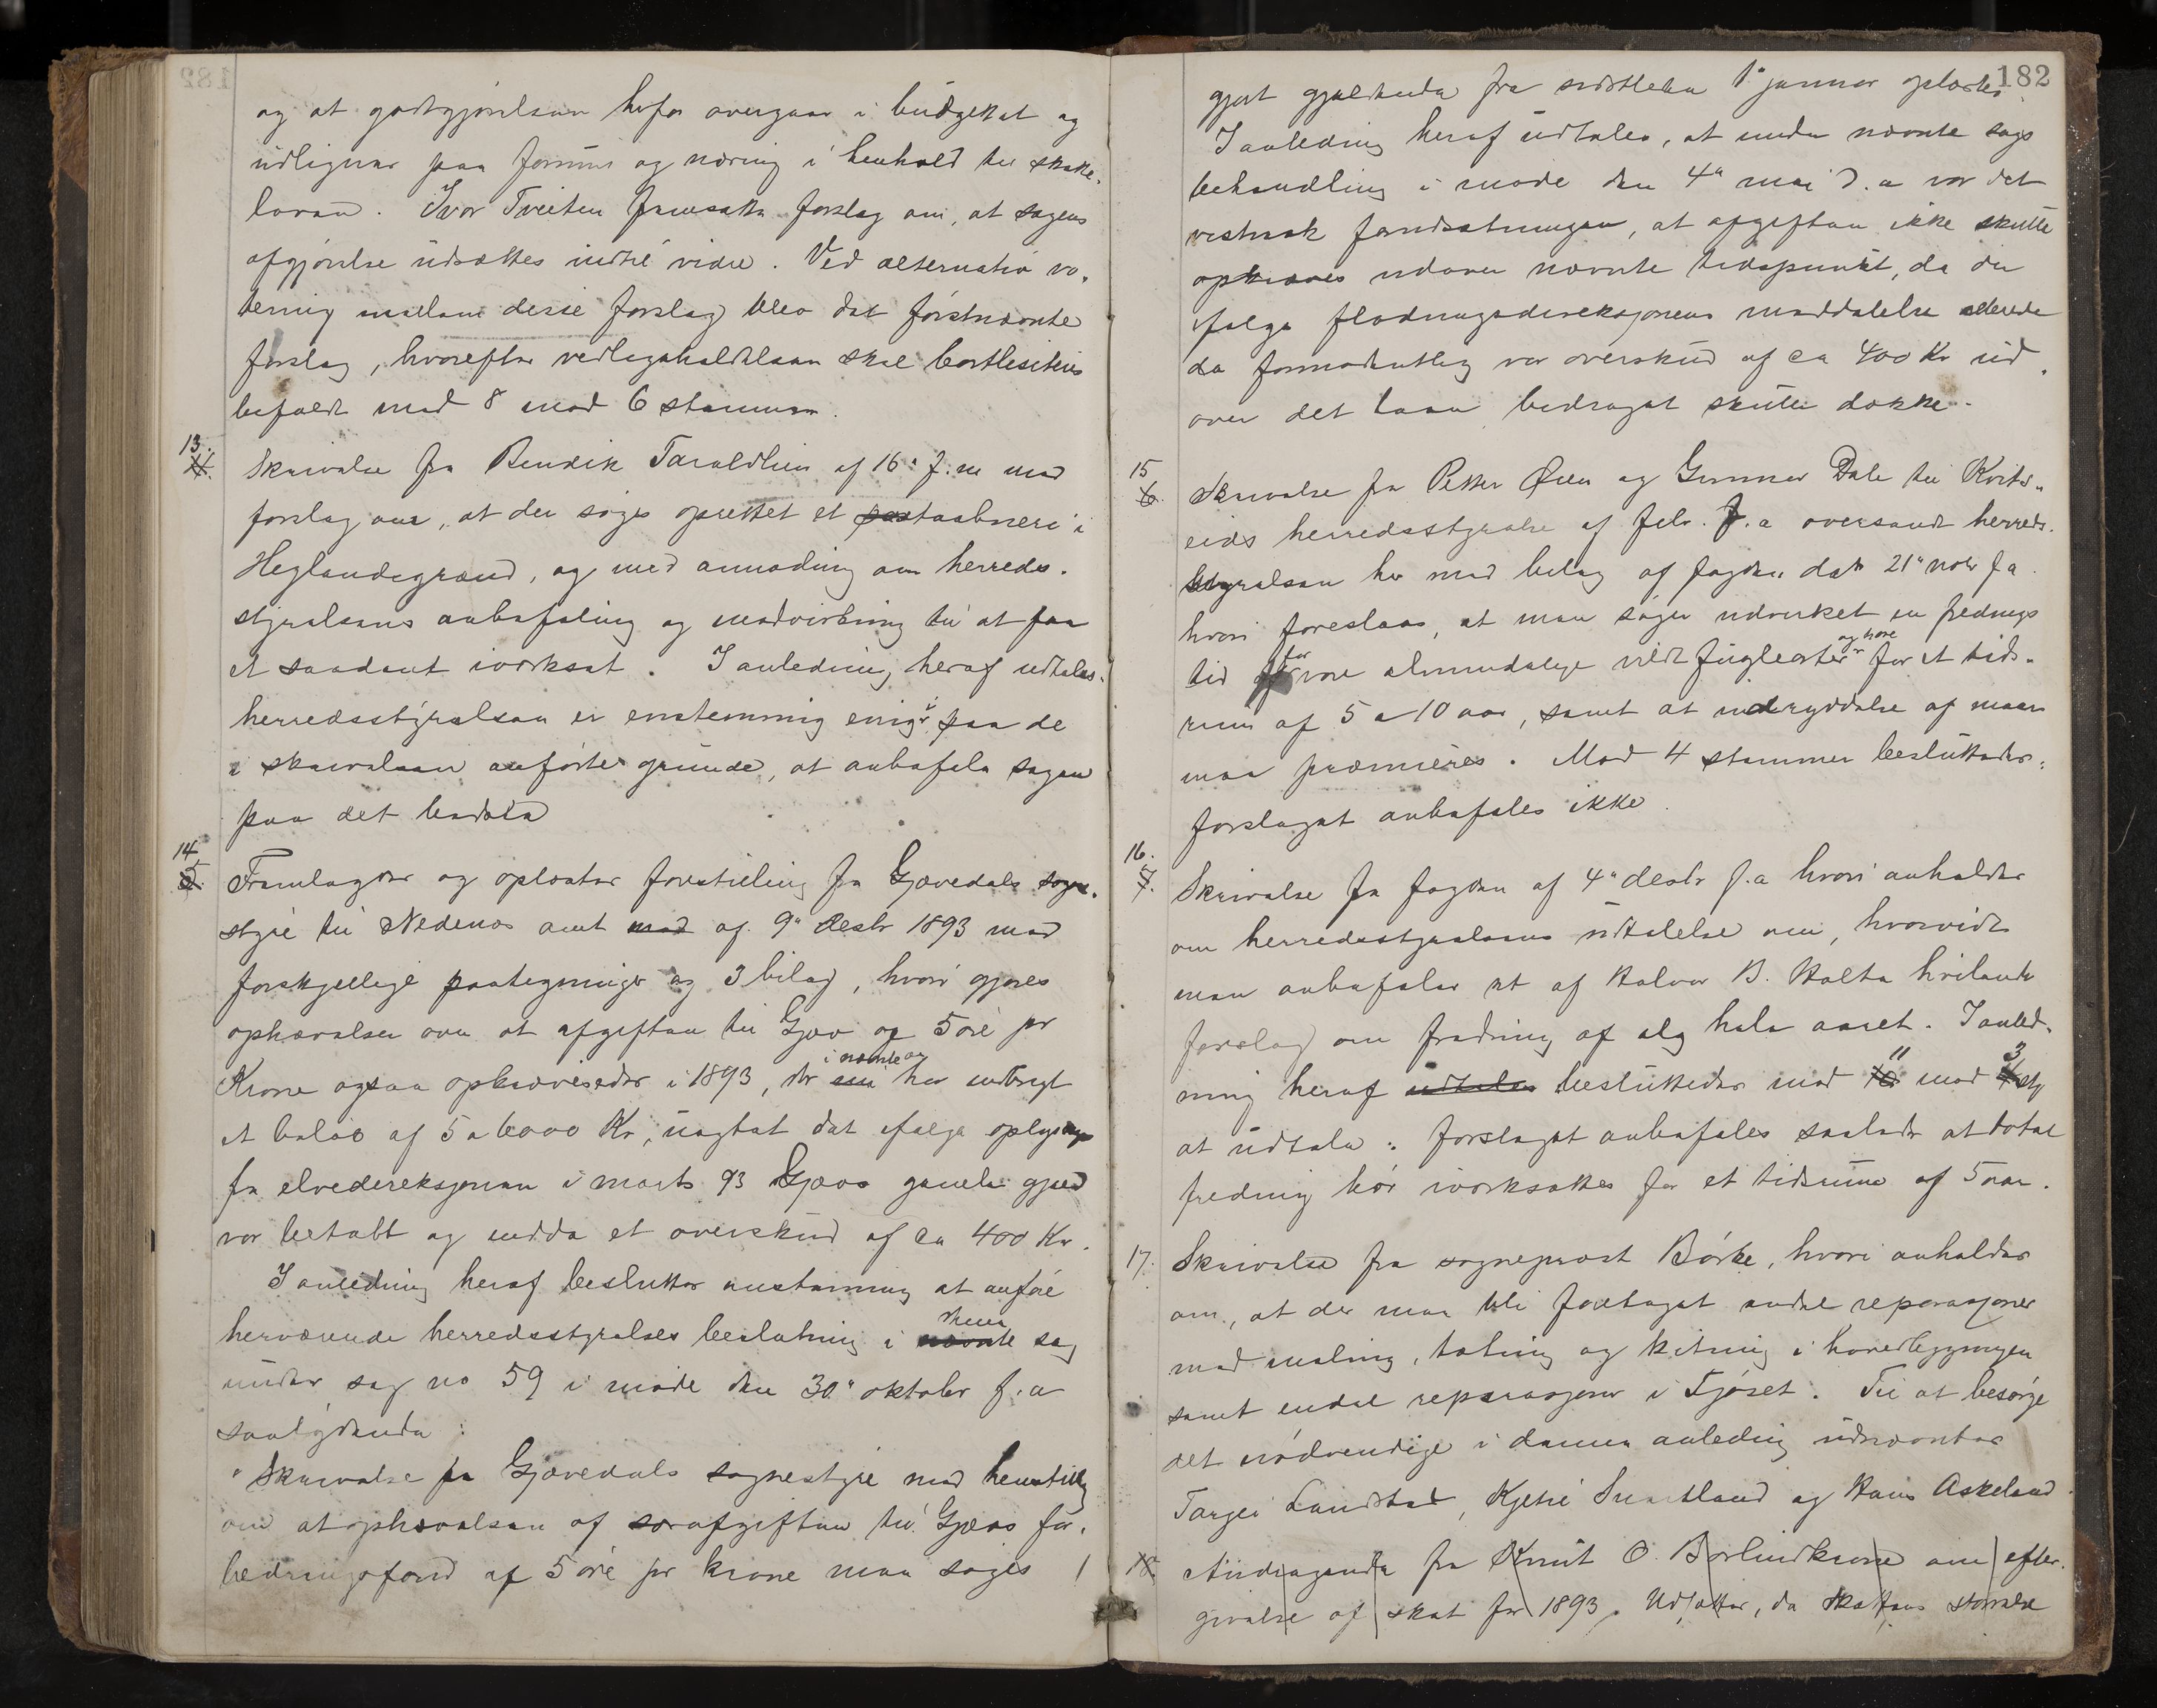 og at godtgjørelsen herfor overgaar i budgettet og
udlignes paa formue og næring i henhold til skatte-
loven. Ivar Tveiten fremsatte forslag om, at sagens
afgjørelse udsættes indtil videre. Ved alternativ vo-
tering mellem disse forslag blev det førstnævnte
forslag, hvorefter vedligeholdelsen skal bortliciteres
bifaldt med 8 mod 6 stemmer.
13.
Skrivelse fra Bendik Taraldlien af 16de f. m med
forslag om, at der søges oprettet et postaabneri i
Heglandsgrænd, og med anmodning om herreds-
styrelsens anbefaling og medvirkning til at faa
et saadant iverksat. I anledning heraf udtales:
herredsstyrelsen er enstemmig enig i paa de
i skrivelsen anførte grunde, at anbefale sagen
paa det bedste
14.
Fremlagdes og oplæstes forestilling fra Gjøvedals sogne-
styre til Nedenes amt med af 9de decbr 1893 med
forskjellige paategninger og 3 bilag, hvori gjøres
ophævelser over at afgiften til Gjøv og 5 øre pr
Krone ogsaa opkrævesedes i 1893, der i nævnte aar har indbragt
et beløb af 5 a 6000 Kr, uagtet det ifølge oplysninger
fra elvedireksjonen i marts 93 Gjøvs gamle gjæld
var betalt og endda et overskud af ca 400 Kr.
I anledning heraf besluttes enstemmig at anføre
herværende herredsstyrelses beslutning i denne nævnte sag
under sag no 59 i møde den 30te oktober f. a
saalydende:
"Skrivelse fra Gjøvedals sognestyre med henstilling
om at ophævelsen af særafgiften til Gjøvs for-
bedringsfond af 5 øre pr krone maa søges
182
gjort gjældende fra sidstleden 1ste januar oplæstes.
I anledning heraf udtales, at under nævnte sags
behandling i møde den 4de mai d. a var det
vistnok forudsætningen, at afgiften ikke skulle
opkræves udover nævnte tidspunkt, da der
ifølge flødningsdireksjonens meddelelse allerede
da formodentlig var overskud af ca 400 Kr ud-
over det laan bidraget skulle dække.
15
Skrivelse fra Petter Øien og Gunnar Dale til Kvits-
eids herredsstyrelse af febr. f. a oversendt herreds-
styrelsen her med bilag af fogden dat 21de novbr f a
hvori foreslaaes, at man søger udvirket en frednings
tid for vore almindelige vildt fuglearter og hare for et tids-
rum af 5 a 10 aar, samt at udryddelse af maar
maa præmieres. Mod 4 stemmer besluttedes:
forslaget anbefales ikke.
16.
Skrivelse fra fogden af 4de decbr f. a hvori anholdes
om herredsstyrelsens udtalelse om, hvorvidt
man anbefaler et af Halvor B. Holte hvilende
forslag om fredning af elg hele aaret. I anled-
ning heraf udtales besluttedes med 11 mod 3 st
at udtale: forslaget anbefales saaledes at total
fredning bør iverksættes for et tidsrum af 5 aar.
17.
Skrivelse fra sogneprest Børke, hvori anholdes
om, at der maa bli foretaget endel reparasjoner
med maling, tætning og kitning i hovedbygningen
samt endel reparasjoner i Fjøset. Til at besørge
det nødvendige i denne anledning udnævntes
Targei Landstad, Kjetil Svartland og Hans Askeland.
18.
Andragende fra Knut O. Børlindkrone om efter-
givelse af skat for 1893. Udsættes, da skattens størrelse